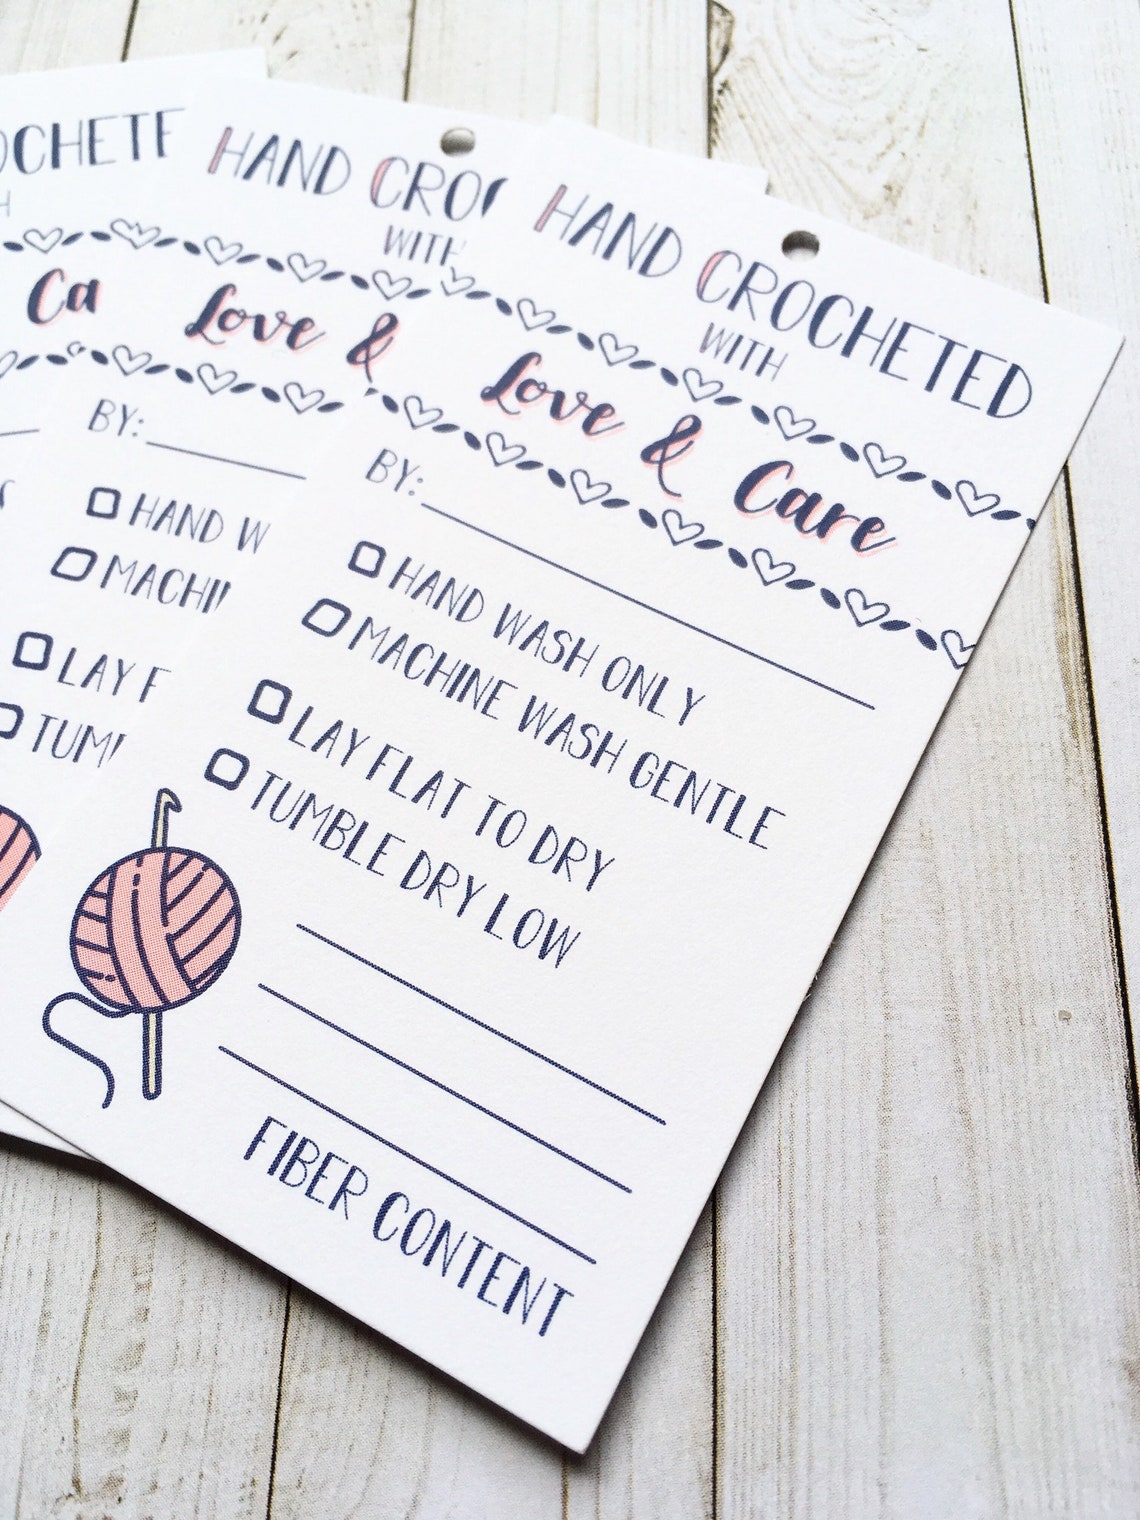 HAND CROCHETED
WITH
Love & Care
BY:
HAND WASH ONLY
MACHINE WASH GENTLE
LAY FLAT TO DRY
TUMBLE DRY LOW
FIBER CONTENT
HAND CRO
WITH
Love &
BY:
HAND W
MACHI
LAY F
TUM
OCHETE
Ca